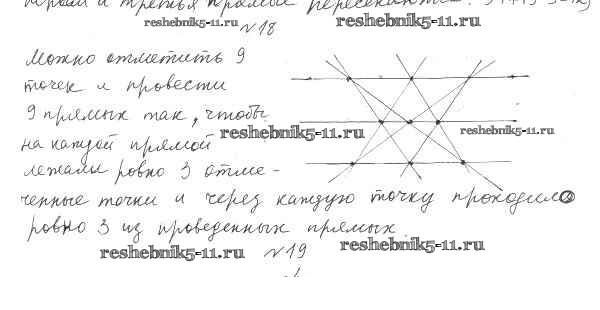 третья прямые пересекаются.
reshebnik5-11.ru reshebnik5-11.ru
№18
Можно отметить 9
точек и провести
9 прямых так, чтобы
на каждой прямой
reshebnik5-11.ru reshebnik5-11.ru
лежали ровно 3 отме-
ченные точки и через каждую точку проходило
ровно 3 из проведенных прямых.
reshebnik5-11.ru №19 reshebnik5-11.ru